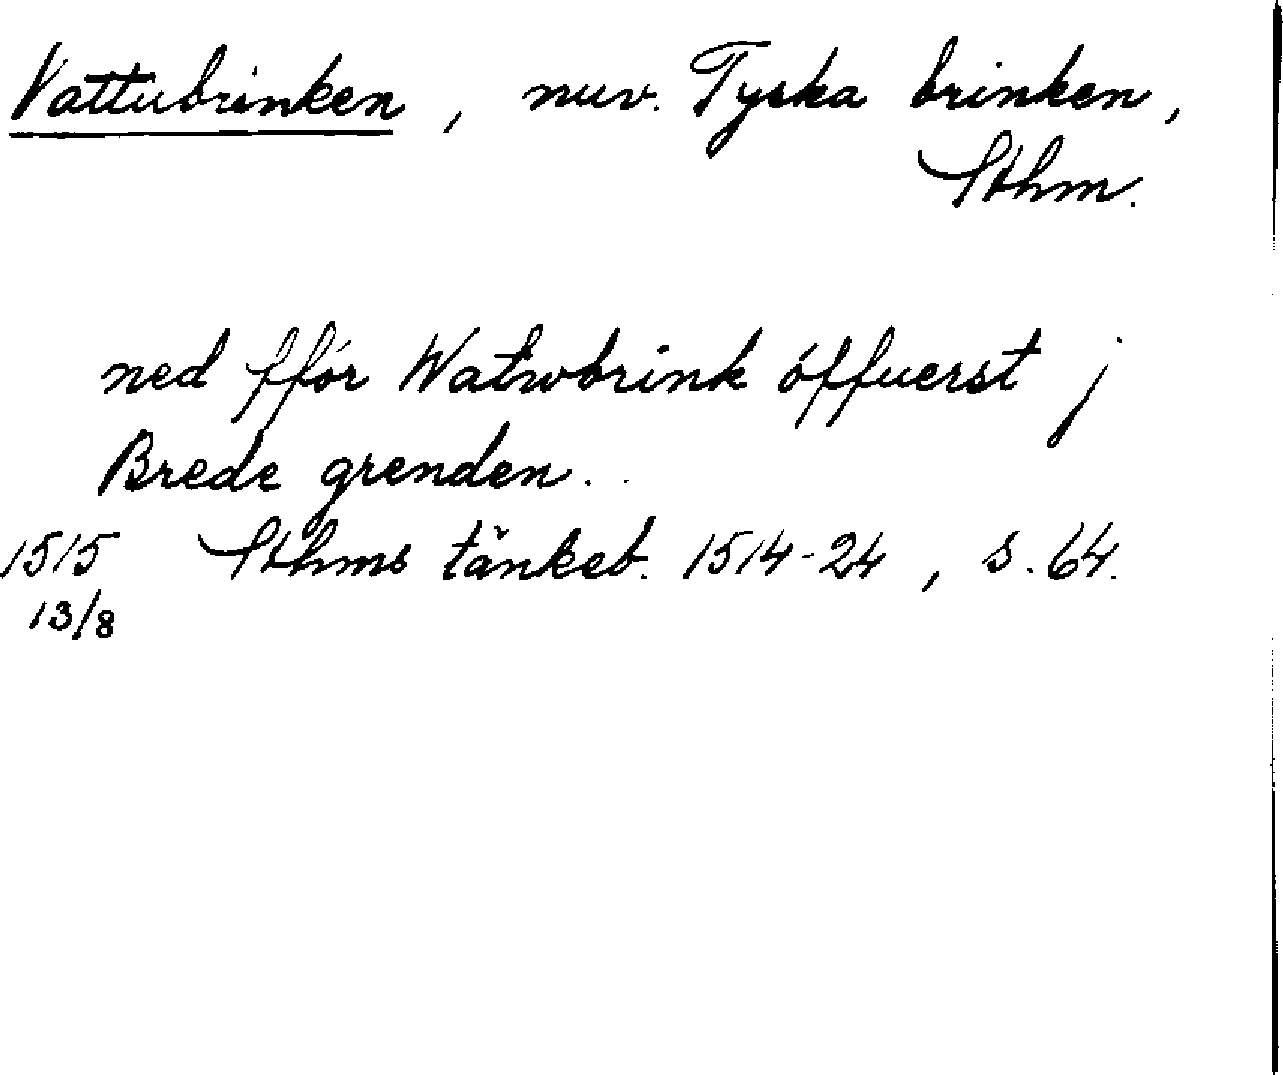 Vattubrinken, nuv. Tyska brinken,
Sthm.
ned ffór Watwbrink óffuerst j
Brede grenden..
1515 Sthms tänkeb. 1514-24, s. 64.
13/8